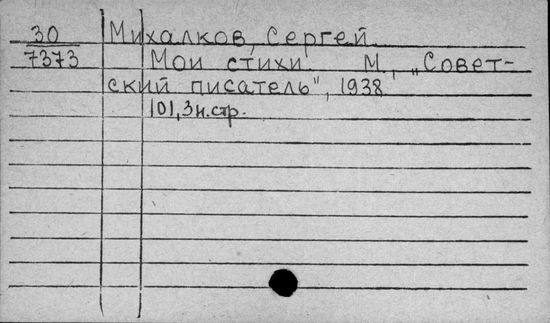 30 Михалков, Сергей
7373 Мои стихи. М., „Совет-
ский писатель", 1938
101, 3 н.стр.